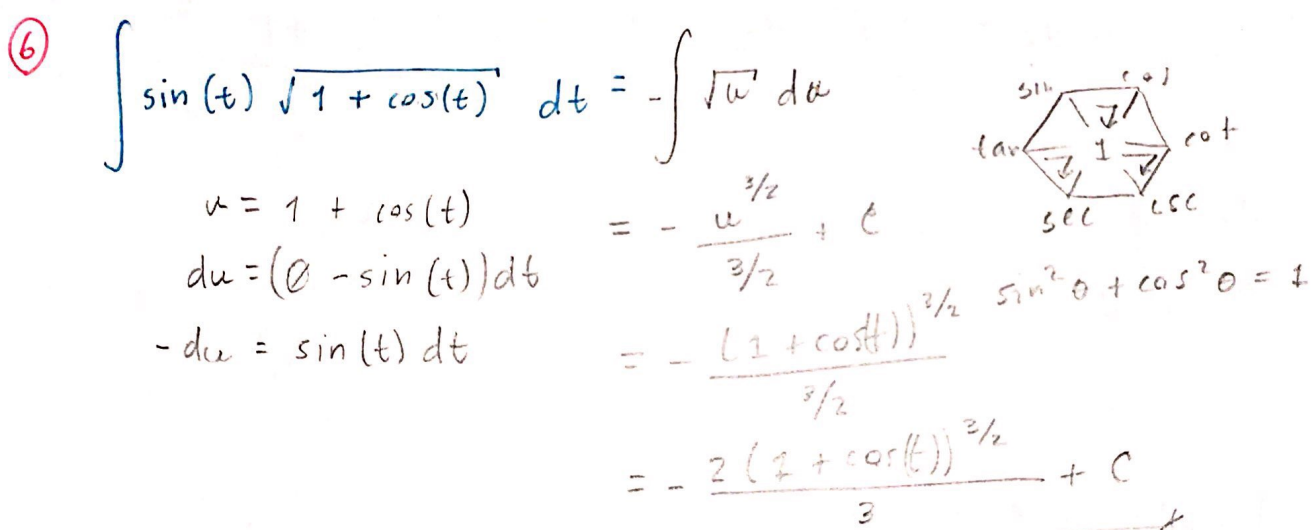 6
∫ sin(t) √(1 + cos(t)) dt = -∫ √u du
u = 1 + cos(t)
du = (0 - sin(t))dt
-du = sin(t) dt
= - u^(3/2) / (3/2) + C
= - (1 + cos(t))^(3/2) / (3/2)
= - 2(1 + cos(t))^(3/2) / 3 + C
sin cos
tan 1 cot
sec csc
sin²θ + cos²θ = 1